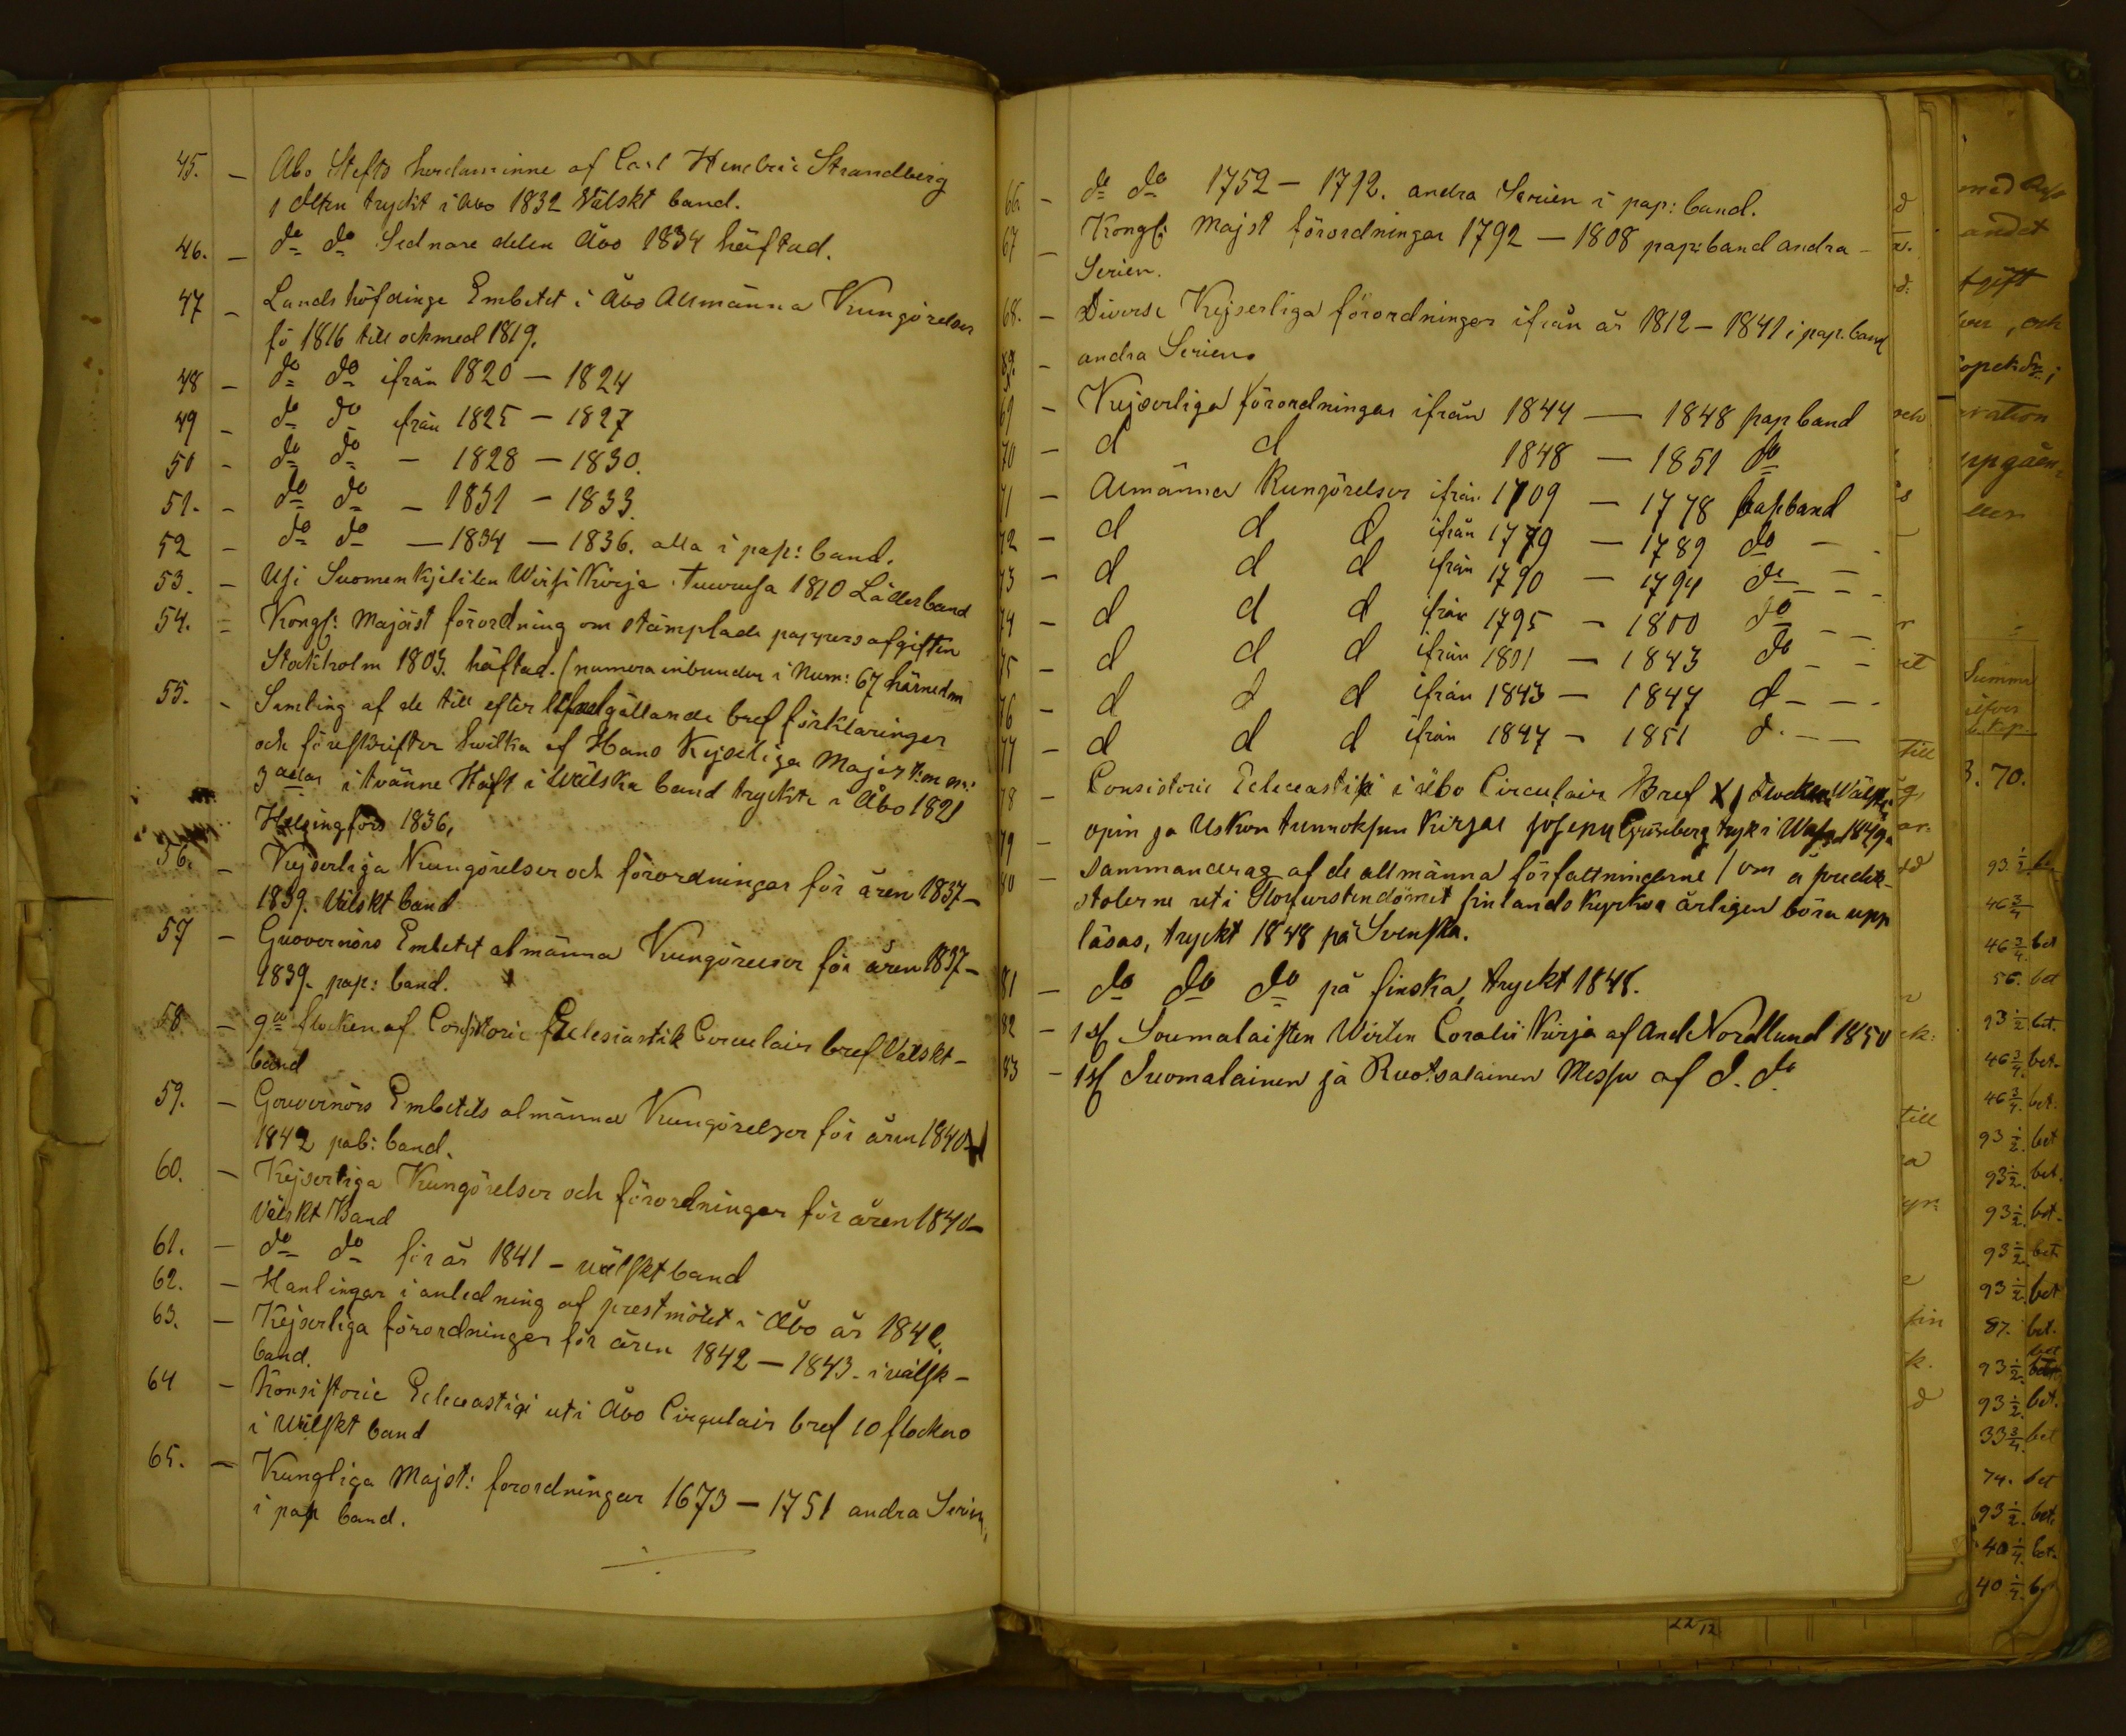 45. — Åbo Stifts herdaminne af Carl Hendric Strandberg
1 delen tryckt i Åbo 1832 Välskt band.
46. — do do Sednare delen Åbo 1834 häftad.
47 — Landshöfdinge Embetet i Åbo Allmänna Kungörelser
fö 1816 till ockmed 1819.
48 — do do ifrån 1820 — 1824
49 — do do ifrån 1825 — 1827
50 — do do — 1828 — 1830.
51. — do do — 1831 — 1833.
52 — do do — 1834 — 1836. alla i pap: band.
53. — Usi Suomenkjelilen Wirsi Kirja Turussa 1810 Läderband
54. = Kongl: Majäst förordning om stämplade pappersafgiften
Stockholm 1803. häftad. (numera inbunden i Num: 67 härnedan
55. — Samling af de till efter lefnad gällande bref förklaringer
och föreskrifter hwilka af Hans Kejserliga Majst:
3 delar i tvänne Häft i Wälska band tryckte i Åbo 1821
Helsingfors 1836,
56. — Kejserliga Kungörelser och förordningar för åren 1837 —
1839. Välskt band
57 — Guovernörs Embetet almänna Kungörelser för åren 1837 —
1839. pap: band.
58 — 9de flocken af Consistorie Eclesiastik Circulair bref Välskt —
band
59. — Gouvernörs Embetets almänna Kungörelser för åren 1840 —
1842 pab: band.
60. — Kejserliga Kungörelser och förordningar för åren 1840 —
Välskt Band
61. — do do för år 1841 — wälsktband
62. — Hanlingar i anledning af prestmötet i Åbo år 1842.
63. — Kejserliga förordningar för åren 1842 — 1843. i välsk —
band.
64 — Konsistorie Ecleeastigi uti Åbo Cirqulair bref 10 flockeno
i Wälskt band
65. — Kungliga Majst: forordningar 1673 — 1751 andra Serien,
i pap band.
66. — do do 1752 — 1792. andra Serien i pap: band.
67 — Kongl: Majst förordningar 1792 — 1808 pap: band andra —
Serien.
68. — Diverse Kejserliga förordningar ifrån år 1812 — 1841 i pap. band
andra Serien.
69 — Kejserliga förordningar ifrån 1844 — 1848 papband
70 — d d 1848 — 1851 do
71 — Allmänna Kungörelser ifrån 1709 — 1778 papband
72 — d d d ifrån 1779 — 1789 do —
73 — d d d ifrån 1790 — 1794 do — — -
74 — d d d ifrån 1795 — 1800 do — —
75 — d d d ifrån 1801 — 1843 do — —
76 — d d d ifrån 1843 — 1847 d — — -
77 — d d d ifrån 1847 — 1851 d. — —
78 — Consistorie Ecleceastiki i Åbo Circulair Bref XI flocken Välskt
79 — opin ja Uskon tunnoksen Kirjas Josepu Grönberg tryk i Wasa 1849.
80 — Sammandrag af de allmänna författningarne / om å predik-
stolerne uti Storfurstendömet finlands Kyrkor årligen böra upp
läsas, tryckt 1848 på Svenska.
81 — do do do på finska, tryckt 1848.
82 — 1 st Soumalaisten Wirten Coralii Kirja af And Nordlund 1850
83 — 1 st Suomalainen ja Ruotsalainen Messu af d. do